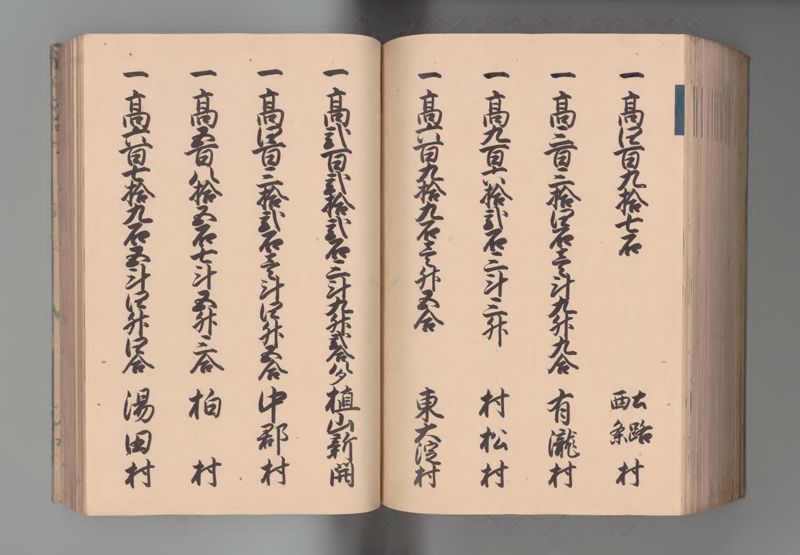 一 高四百九拾七石 土路西条村
一 高三百三拾四石壱斗九升九合 有瀧村
一 高九百六拾弐石三斗三升 村松村
一 高六百九拾九石壱升五合 東大淀村
一 高弐百弐拾弐石三斗九升弐合八夕 植山新開
一 高四百三拾弐石壱斗四升五合 中郡村
一 高五百八拾五石七斗五升三合 柏村
一 高六百七拾九石五斗四升四合 湯田村